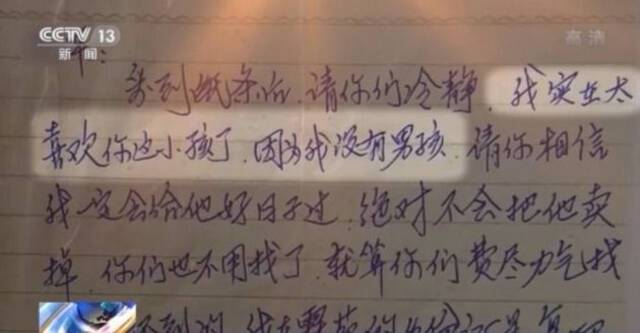 CCTV 13
高清
新闻
到纸条后,请你们冷静,我实在太
喜欢你这小孩了,因为我没有男孩,请你相信
我一定会给他好日子过,绝对不会把他卖
掉,你们也不用找了,就算你们费尽力气找
不到的,我